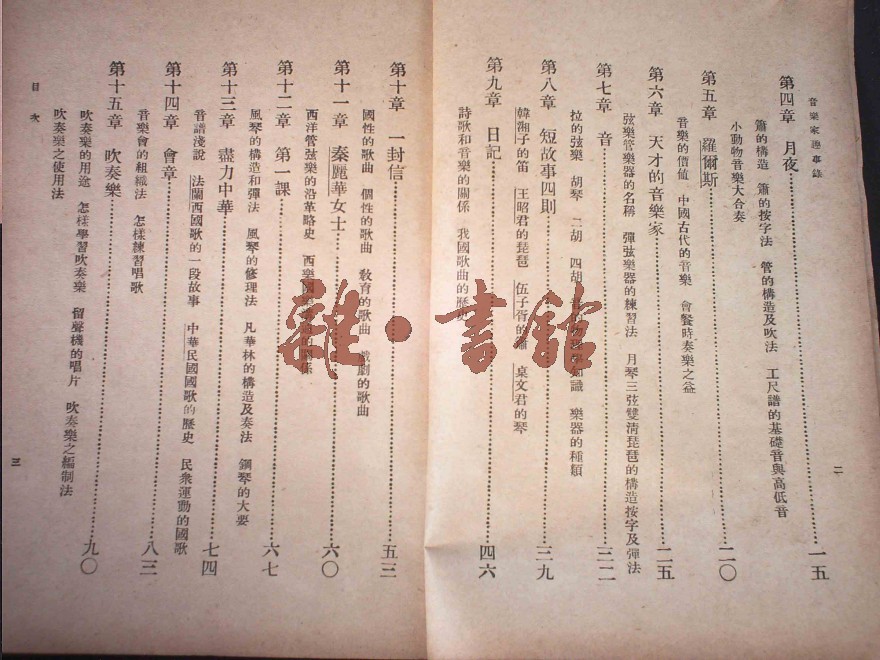 音樂家趣事錄
二
第四章 月夜……一五
簫的構造 簫的按字法 管的構造及吹法 工尺譜的基礎音與高低音
小動物音樂大合奏
第五章 羅爾斯……二〇
音樂的價值 中國古代的音樂 會餐時奏樂之益
第六章 天才的音樂家……二五
弦樂管樂器的名稱 彈弦樂器的練習法 月琴三弦雙清琵琶的構造按字及彈法
第七章 音……三二
拉的弦樂 胡琴 二胡 四胡 識 樂器的種類
第八章 短故事四則……三九
韓湘子的笛 王昭君的琵琶 伍子胥的簫 桌文君的琴
第九章 日記……四六
詩歌和音樂的關係 我國歌曲的歷史
第十章 一封信……五三
國性的歌曲 個性的歌曲 敎育的歌曲 戲劇的歌曲
第十一章 秦麗華女士……六〇
西洋管弦樂的沿革略史 西樂國樂 的關係
第十二章 第一課……六七
風琴的構造和彈法 風琴的修理法 凡華林的構造及奏法 鋼琴的大要
第十三章 盡力中華……七四
音譜淺說 法蘭西國歌的一段故事 中華民國國歌的歷史 民衆運動的國歌
第十四章 會章……八三
音樂會的組織法 怎樣練習唱歌
第十五章 吹奏樂……九〇
吹奏樂的用途 怎樣學習吹奏樂 留聲機的唱片 吹奏樂之編制法
吹奏樂之使用法
目次
三
雜·書館